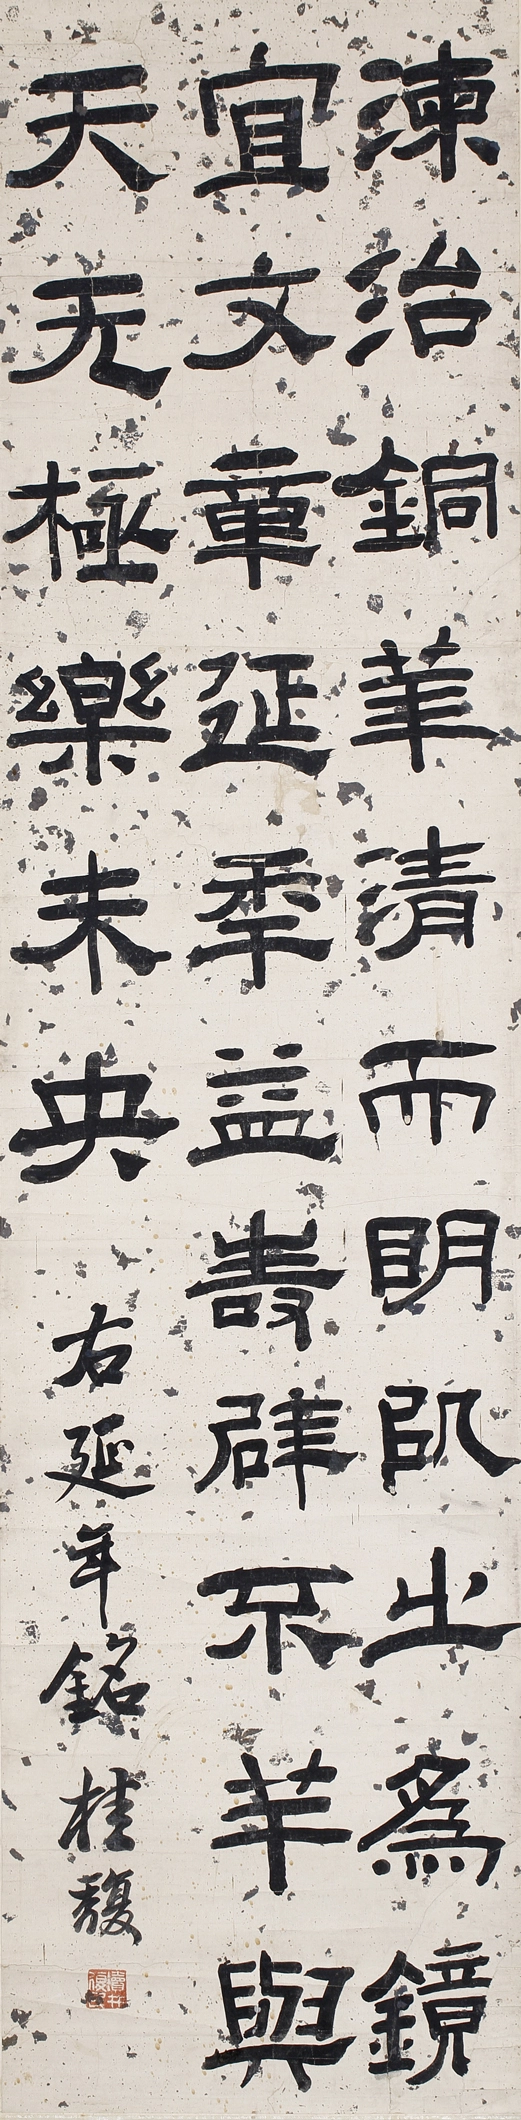 湅治銅華清而明㕥之爲鏡
宜文章延秊益壽辟不羊與
天无極樂未央
右延年銘 桂馥